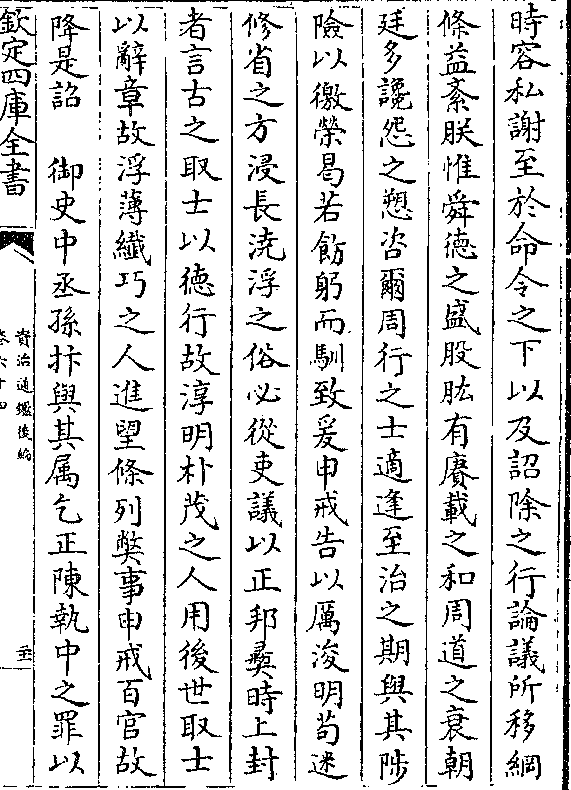 時容私謝至於命令之下以及詔除之行論議所移綱
條益紊朕惟舜德之盛股肱有賡載之和周道之衰朝
廷多讒怨之愬咨爾周行之士適逢至治之期與其陟
險以徼榮曷若飭躬而馴致爰申戒告以厲浚明苟迷
修省之方浸長澆浮之俗必從吏議以正邦彞時上封
者言古之取士以德行故淳明朴茂之人用後世取士
以辭章故浮薄纖巧之人進望條列獘事申戒百官故
降是詔　御史中丞孫抃與其属乞正陳執中之罪以
欽定四庫全書
資治通鑑後編
卷六十四